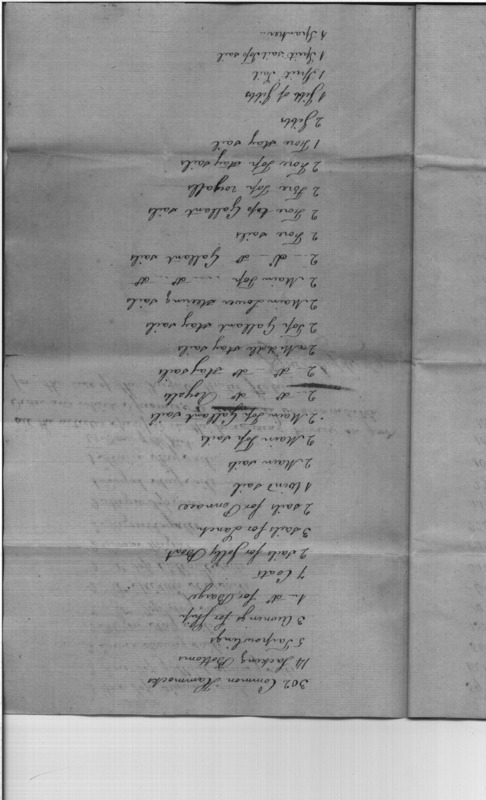 302 Common Hammocks
14 Sacking Bottoms
5 Tarpowlings
3 Awnings for Ship
1 — do for Barge
7 Coats
2 Sails for Jolly Boat
3 Sails for Lanch
2 Sails for Pennace
1 Wind sail
2 Main sails
2 Main Top sails
2 Main Top Gallant sails
2 — do — do Royalls
2 — do — do stay sails
2 Middle stay sails
2 Top Gallant stay sails
2 Main Lower steering sails
2 Main Top — do — do
2 — do — do Gallant sails
2 Fore sails
2 Fore top Gallant sails
2 Fore Top royalls
2 Fore Top stay sails
1 Fore stay sail
2 Jibbs
1 Jibb of Jibbs
1 Sprit Sail
1 Sprit sail top sail
1 Spanker